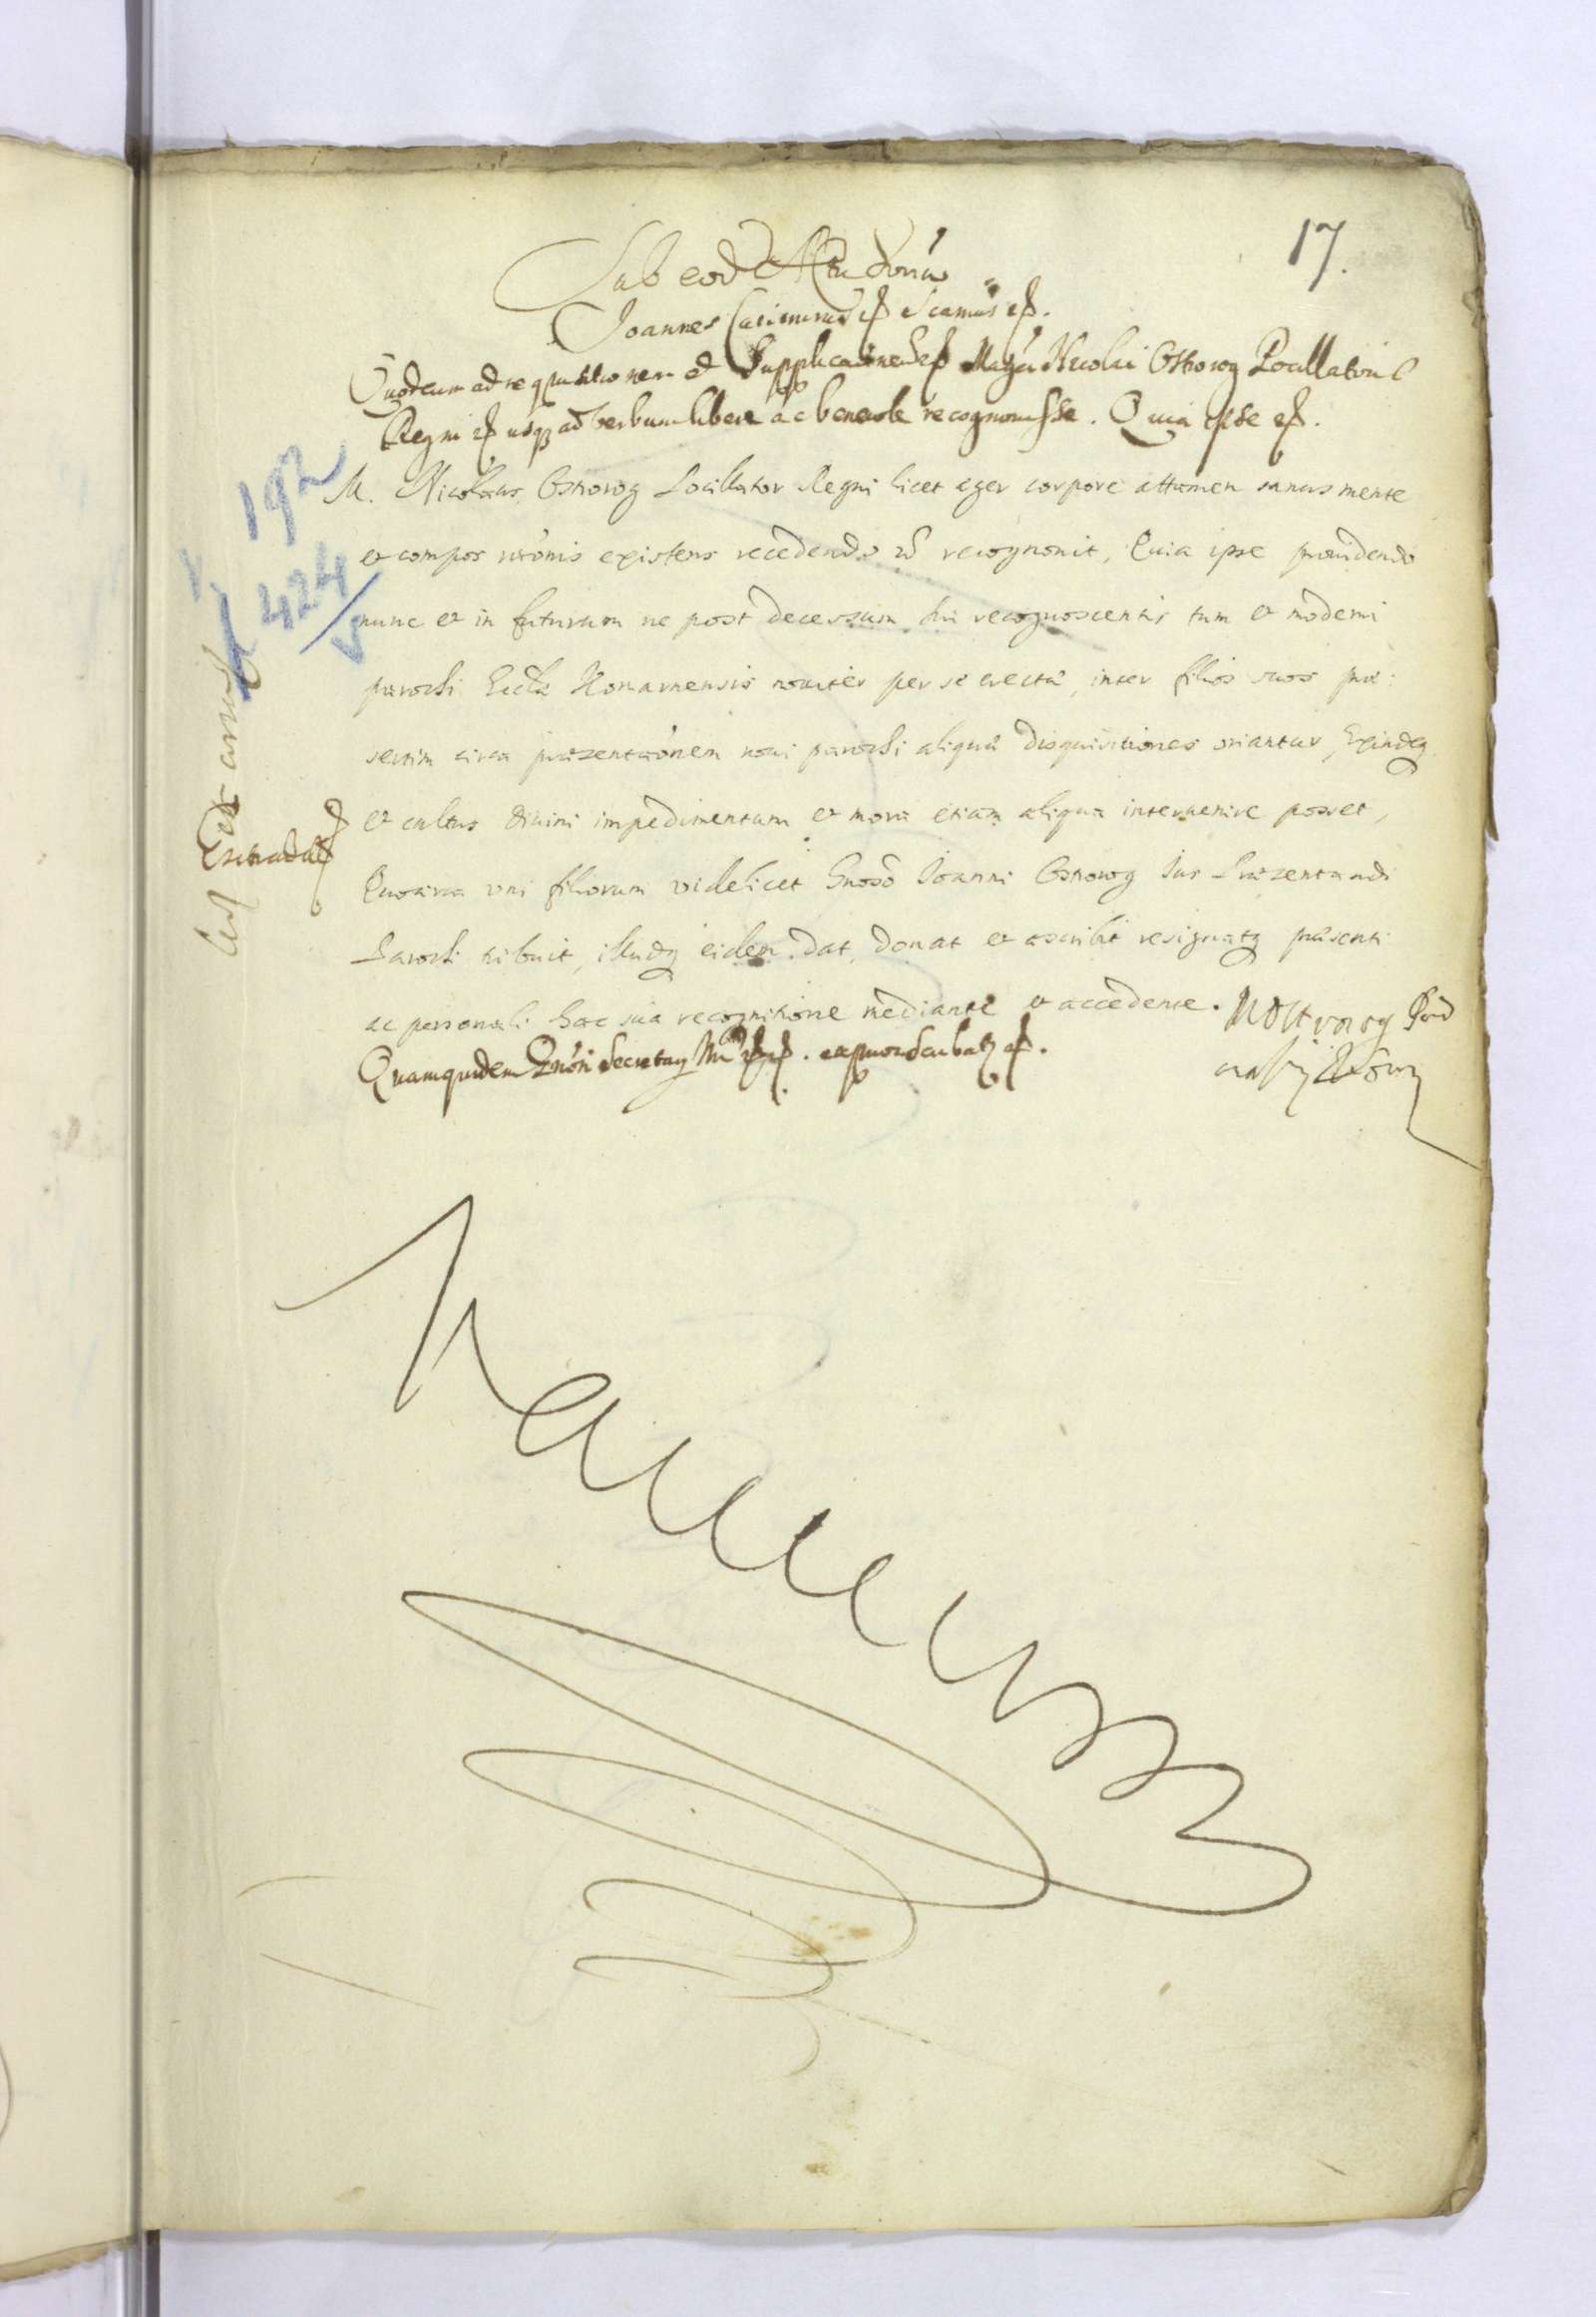 17.
Sub eod Actu
Joannes Casimirus etc etc.
Quod cum ad requisitionem et Supplicaõnem etc Magci Nicolai Ostrorog Pocillatoris
Regni etc usq ad verbum libere ac benevole recognovisse. Quia ipse etc.
M. Nicolaus Ostrorog Pocillator Regni licet eger corpore attamen sanus mente
et compos rãonis existens recedendo recognovit, Quia ipse providendo
nunc et in futurum ne post decessum sui recognoscentis tum et moderni
parochi Eccłæ Komarnensis noviter per se erectæ, inter filios suos præ:
sertim circa præsentaõnem novi parochi aliquæ disquisitiones oriantur, Exindeq
et cultus divini impedimentum et mora etiam aliqua intervenire posset,
Quocirca uni filiorum videlicet Gnoso Joanni Ostrorog Jus Præzentandi
Parochi tribuit, illudq eidem dat, donat et ascribit resignatq præsenti
ac personali hac sua recognitione mediante et accedente. NOstrorog Pod
Quamquidem etc.
192
424